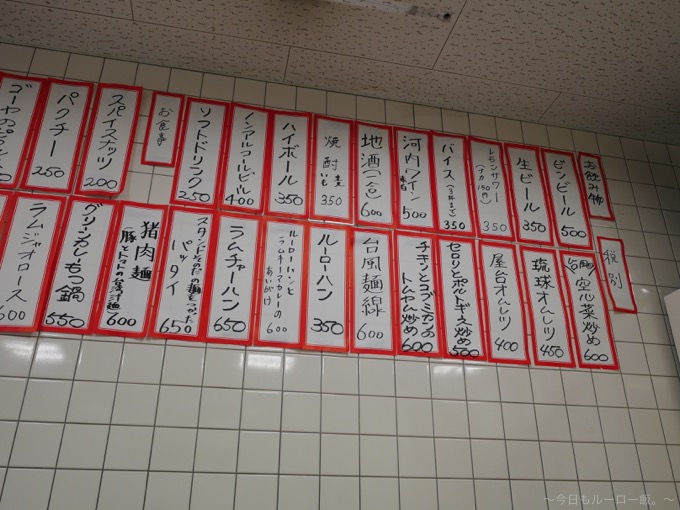 お飲み物
ビンビール
500
生ビール
350
レモンサワー
(ナカ150円)
350
バイス(3杯まで)
350
河内ワイン
500
地酒(一合)
600
焼酎 麦
いも
350
ハイボール
350
ノンアルコールビール
400
ソフトドリンク
250
お食事
スパイスナッツ
200
パクチー
250
税別
空心菜炒め
600
琉球オムレツ
450
屋台オムレツ
400
セロリとポルトギース炒め
500
チキンとコブミカンの
トムヤム炒め
600
台風麺線
600
ルーローハン
350
ルーローハンと
ラムキーマカレーの
あいがけ
600
ラムチャーハン
650
パッタイ
650
猪肉麺
(豚とトマトの台湾汁麺)
600
グリーンカレーもつ鍋
550
ラムジャオロース
600
〜今日もルーロー飯。〜